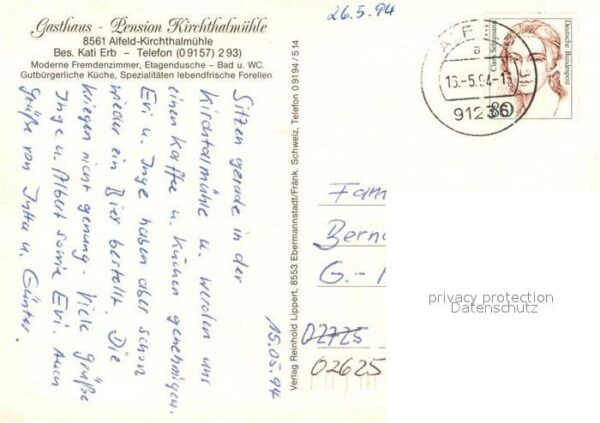 Gasthaus - Pension Kirchthalmühle
8561 Alfeld-Kirchthalmühle
Bes. Kati Erb – Telefon (09157) 293)
Moderne Fremdenzimmer, Etagendusche – Bad u. WC.
Gutbürgerliche Küche, Spezialitäten lebendfrische Forellen
26.5.94
15.05.94
Sitzen gerade in der
Kirchtalmühle u. werden uns
einen Kaffee u. Kuchen genehmigen.
Evi u. Inge haben aber schon
wieder ein Bier bestellt. Die
kriegen nicht genung. Viele Grüße
Inge u. Albert sowie Evi. Auch
Grüße von Jutta u. Günter.
Verlag Reinhold Lippert, 8553 Ebermannstadt/Fränk. Schweiz, Telefon 09194/514
a
16.-5.94-1
91236
Clara Schumann
Deutsche Bundespost
80
Fam
Bern
G.-
02725
02625
privacy protection
Datenschutz